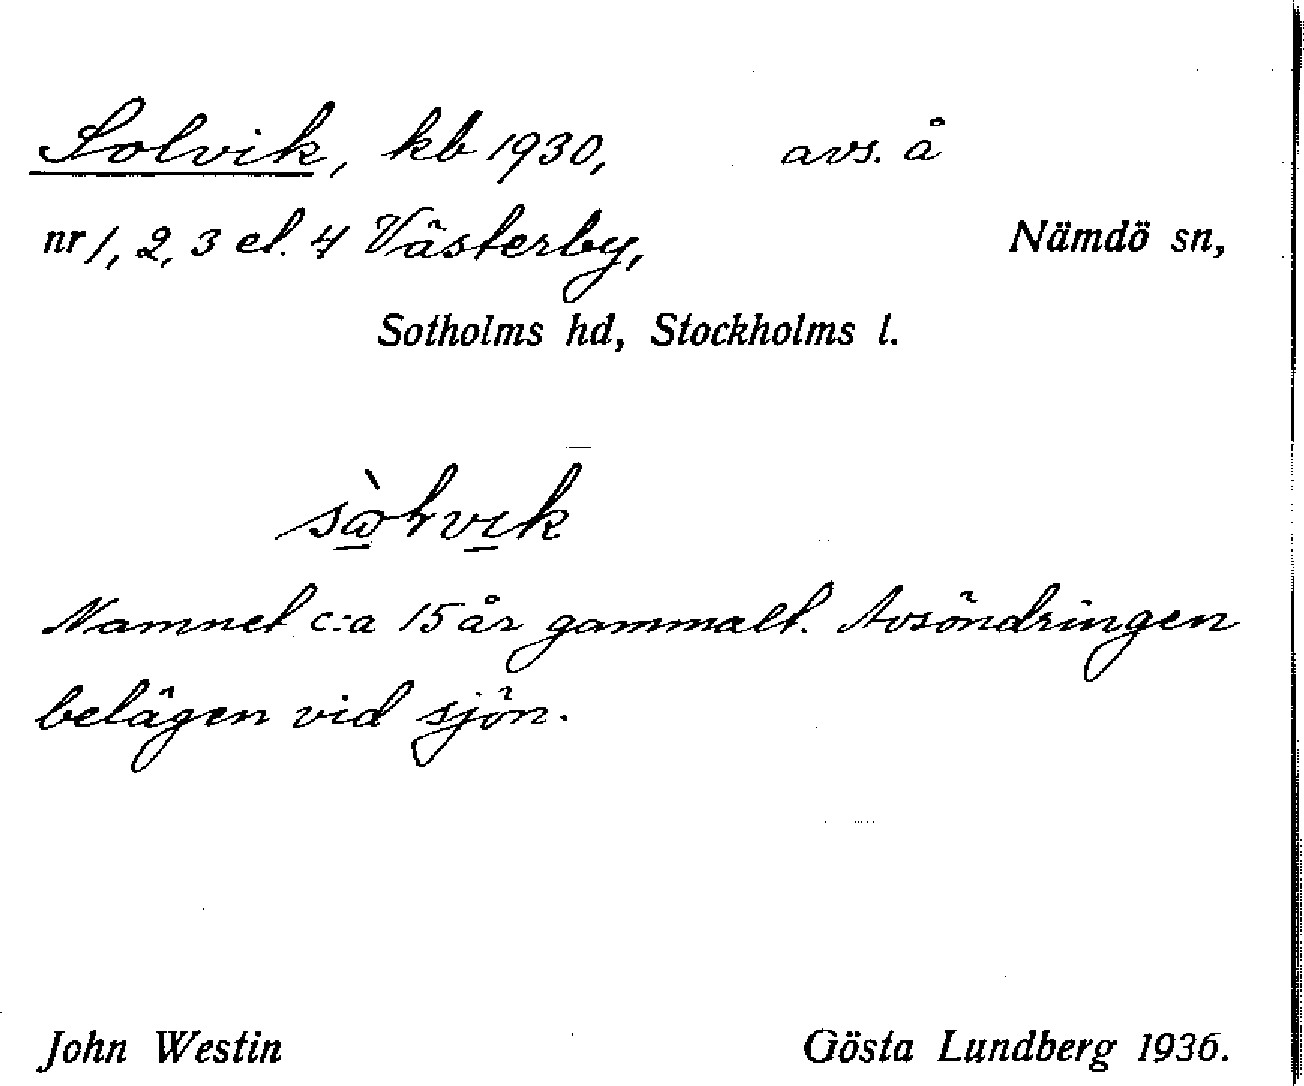 Solvik, kb 1930, avs. å
nr 1, 2, 3 el. 4 Västerby, Nämdö sn,
Sotholms hd, Stockholms l.
Namnet c:a 15 år gammalt. Avsöndringen
belägen vid sjön.
John Westin Gösta Lundberg 1936.